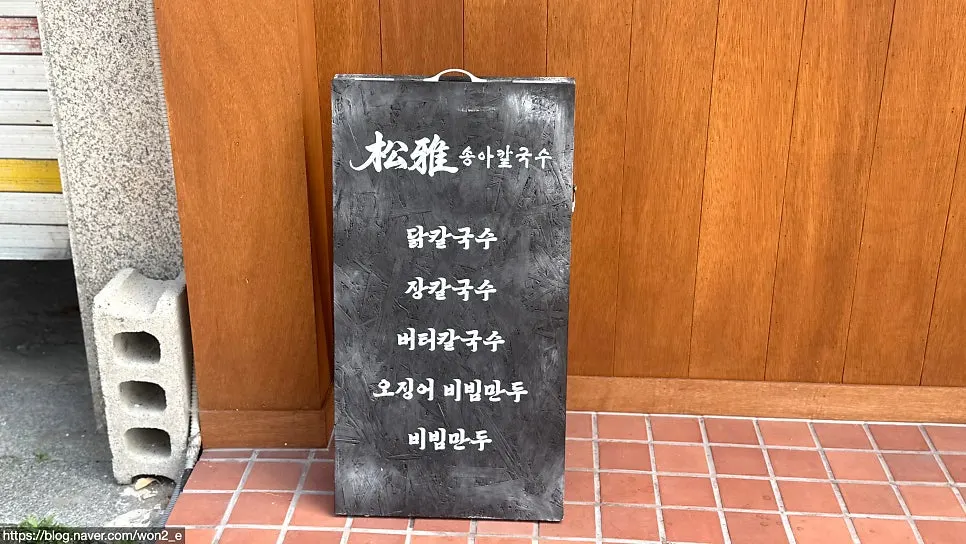 松雅 송아칼국수
닭칼국수
장칼국수
버터칼국수
오징어 비빔만두
비빔만두
https://blog.naver.com/won2_e